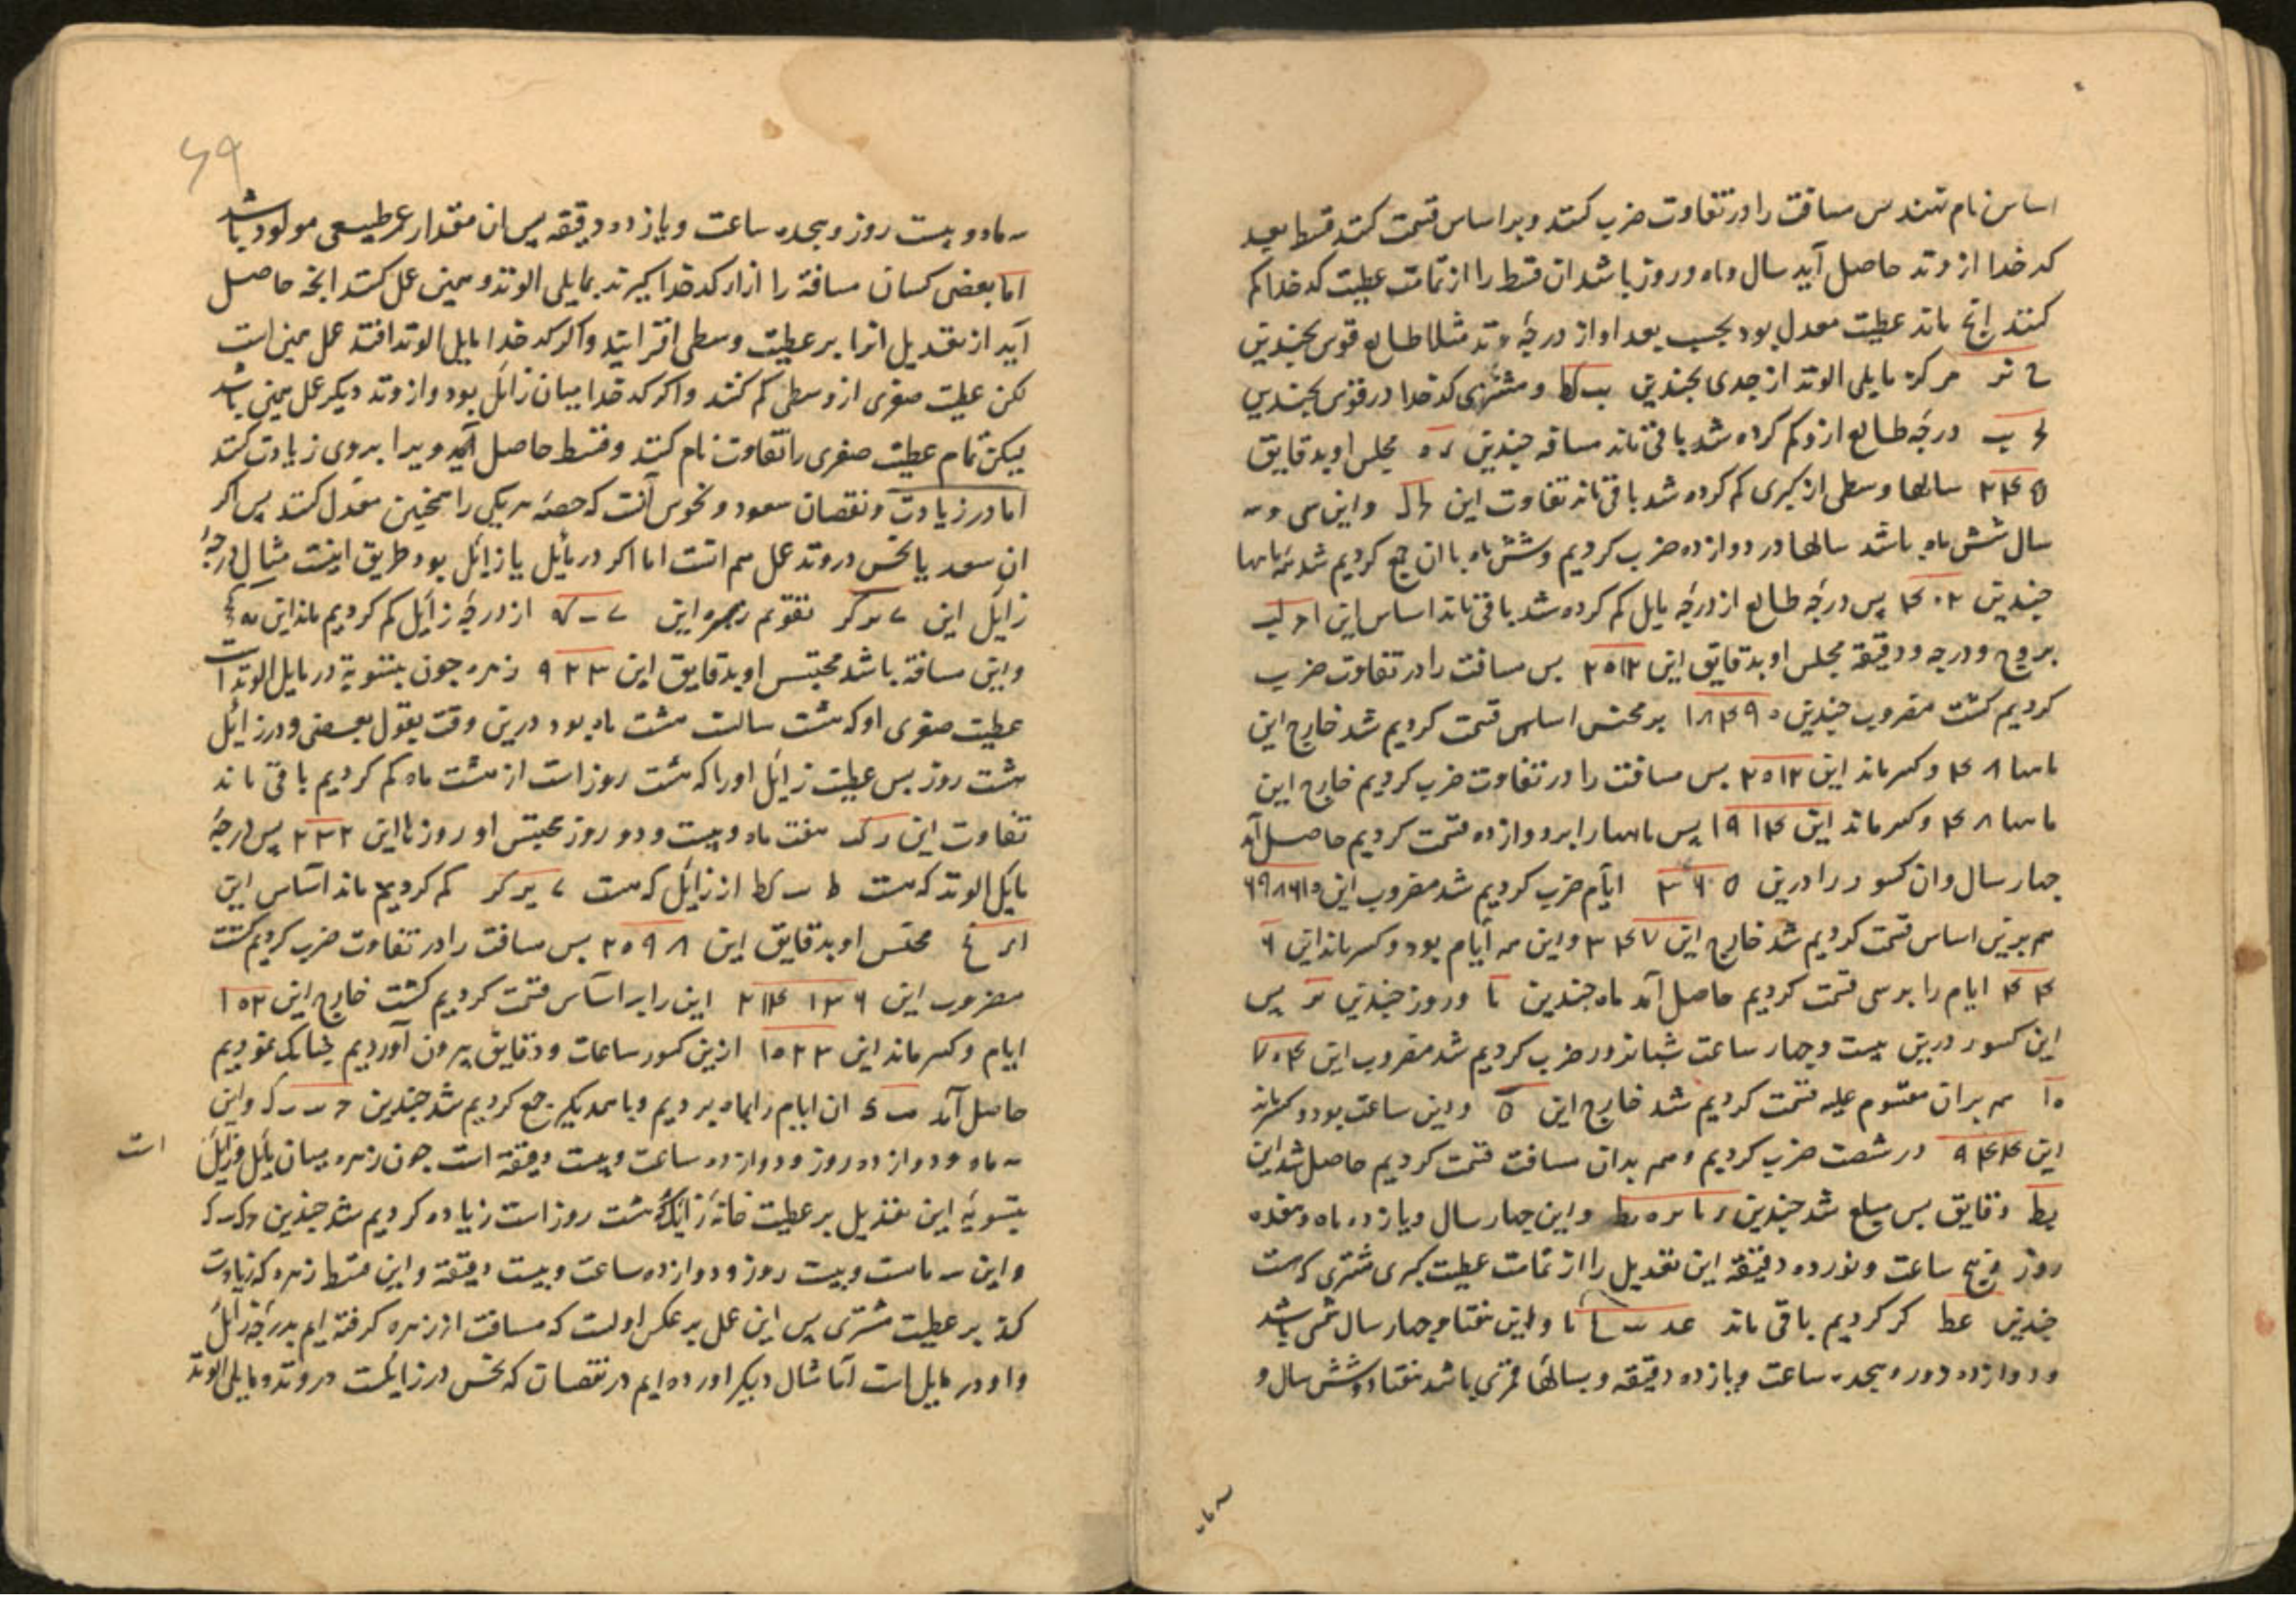 اساس نام نهند بس مسافت را در تفاوت ضرب کنند و بر اساس قسمت کنند قسط بعد
کدخدا از وتد حاصل آید سال و ماه و روز باشد ان قسط را از تمامت عطیت کدخدا کم
کنند انچ ماند عطیت معدل بود بحسب بعد او از درجهٔ وتد مثلا طالع قوس بجندین
ح نر مرکز مایلی الوتد از جدی بجندین ب کط و مشتری کدخدا در قوس بجندین
درجهٔ طالع ازو کم کرده شد باقی ماند مسافه جندین مجلس او بدقایق
۳۴۵ سالها وسطی از کبری کم کرده شد باقی ماند تفاوت این و این سی و سه
سال شش ماه باشد سالها در دوازده ضرب کردیم و شش ماه با ان جمع کردیم شد ماهها
جندین ۴۰۲ پس درجهٔ طالع از درجهٔ مایل کم کرده شد باقی ماند اساس این
بروج و درجه و دقیقه مجلس او بدقایق این ۲۵۱۲ بس مسافت را در تفاوت ضرب
کردیم کشت مضروب جندین ۱۸۴۹۰ بر مجنس اساس قسمت کردیم شد خارج این
ماهها ۴۸ و کسر ماند این ۲۵۱۲ بس مسافت را در تفاوت ضرب کردیم خارج این
ماهها ۴۸ و کسر ماند این ۱۹۱۴ پس ماهها را بر دوازده قسمت کردیم حاصل آمد
جهار سال و ان کسور را درین ۳۶۵ ایام ضرب کردیم شد مضروب این ۶۹۸۶۱۰
هم برین اساس قسمت کردیم شد خارج این ۳۴۷ و این همه ایام بود و کسر ماند این ۶
۴۴ ایام را بر سی قسمت کردیم حاصل آمد ماه جندین نا و روز جندین نر پس
این کسور درین بیست و جهار ساعت شبانروز ضرب کردیم شد مضروب این ۷۰۴
۱۵ هم بران مقسوم علیه قسمت کردیم شد خارج این ۵ و این ساعت بود و کسر ماند
این ۹۴۴ در شصت ضرب کردیم و هم بدان مسافت قسمت کردیم حاصل شد این
یط دقایق بس مبلغ شد جندین و این جهار سال و یازده ماه و هفده
روز و پنج ساعت و نوزده دقیقه این تعدیل را از تمامت عطیت کبری مشتری که هست
جندین عط کر کردیم باقی ماند عد و این هفتاد و جهار سال شمسی باشد
و دوازده دور و هجده ساعت و یازده دقیقه و بسالهاء قمری باشد هفتاد و شش سال و
سه ماه
۶۹
سه ماه و بیست روز و هجده ساعت و یازده دقیقه پس ان مقدار عمر طبیعی مولود باشد
اما بعضی کسان مسافة را از ار کدخدا کیرند بمایلی الوتد و همین عمل کنند انجه حاصل
آید از تعدیل انرا بر عطیت وسطی افزایند و اکر کدخدا بمایل الوتد افتد عمل همین است
لکن عطیت صغری از وسطی کم کنند و اکر کدخدا میان زائل بود و از وتد دیکر عمل همین باشد
لیکن تمام عطیت صغری را تفاوت نام کنند و قسط حاصل آمد ویرا بروی زیادت کنند
اما در زیادت و نقصان سعود و نحوس آنست که حصهٔ هر یکی را همجنین معدل کنند پس اکر
ان سعد یا نحس در وتد عمل هم انست اما اکر در مائل یا زائل بود طریق اینست مثال درجهٔ
زایل این ے یر کر تقویم زهره این از درجهٔ زائل کم کردیم ماند این
و این مسافة باشد مجنس او بدقایق این ۹۳۳ زهره جون بتسویة در مایل الوتد است
عطیت صغری او که هشت سالست هشت ماه بود درین وقت بقول بعضی و در زائل
هشت روز بس عطیت زائل اورا که هشت روز است از هشت ماه کم کردیم باقی ماند
تفاوت این ر ک هفت ماه و بیست و دو روز مجنس او روزها این ۲۳۲ پس درجهٔ
مایل الوتد که هست ط کط از زائل که هست ے یر کر کم کردیم ماند آساس این
مجنس او بدقایق این ۲۵۹۸ بس مسافت را در تفاوت ضرب کردیم کشت
مضروب این ۱۳۶ ۲۱۴ این را بر آساس قسمت کردیم کشت خارج این ۱۵۲
ایام و کسر ماند این ۱۵۲۲ ازین کسور ساعات و دقایق بیرون آوردیم جنانک نمودیم
حاصل آمد ان ایام را بماه بردیم و با همدیکر جمع کردیم شد جندین و این
سه ماه و دوازده روز و دوازده ساعت و بیست دقیقه است جون زهره میان مائل و زائل
است
بتسویهٔ این تعدیل بر عطیت خانهٔ زائل که هشت روز است زیاده کردیم شد جندین
و این سه ماهست و بیست روز و دوازده ساعت و بیست دقیقه و این قسط زهره که زیادت
کند بر عطیت مشتری پس این عمل بر عکس اولست که مسافت از زهره کرفته ایم بدرجهٔ زائل
و او در مایل است اما مثال دیکر اورده ایم در نقصان که نحس در زایلست در وتد و مایلی الوتد